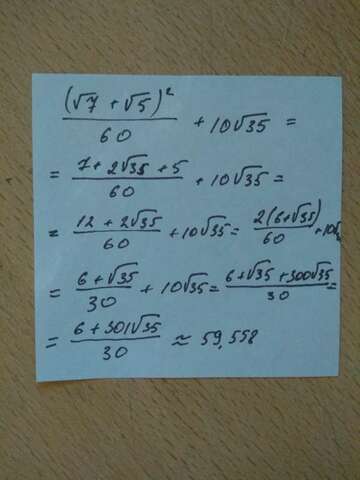 (√7 + √5)² / 60 + 10√35 =
= 7 + 2√35 + 5 / 60 + 10√35 =
= 12 + 2√35 / 60 + 10√35 = 2(6+√35) / 60 + 10√
= 6 + √35 / 30 + 10√35 = 6 + √35 + 300√35 / 30 =
= 6 + 301√35 / 30 ≈ 59,558